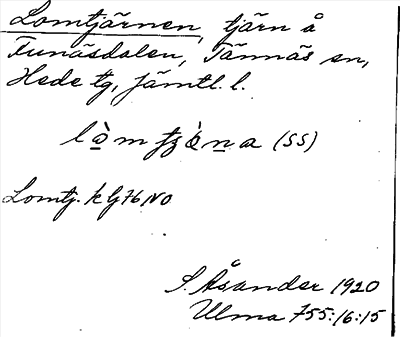 Lomtjärnen, tjärn å
Funäsdalen, Tännäs sn,
Hede tg, Jämtl. l.
(SS)
Lomtj. k Gj76 NO
S. Åsander 1920
Ulma 755:16:15